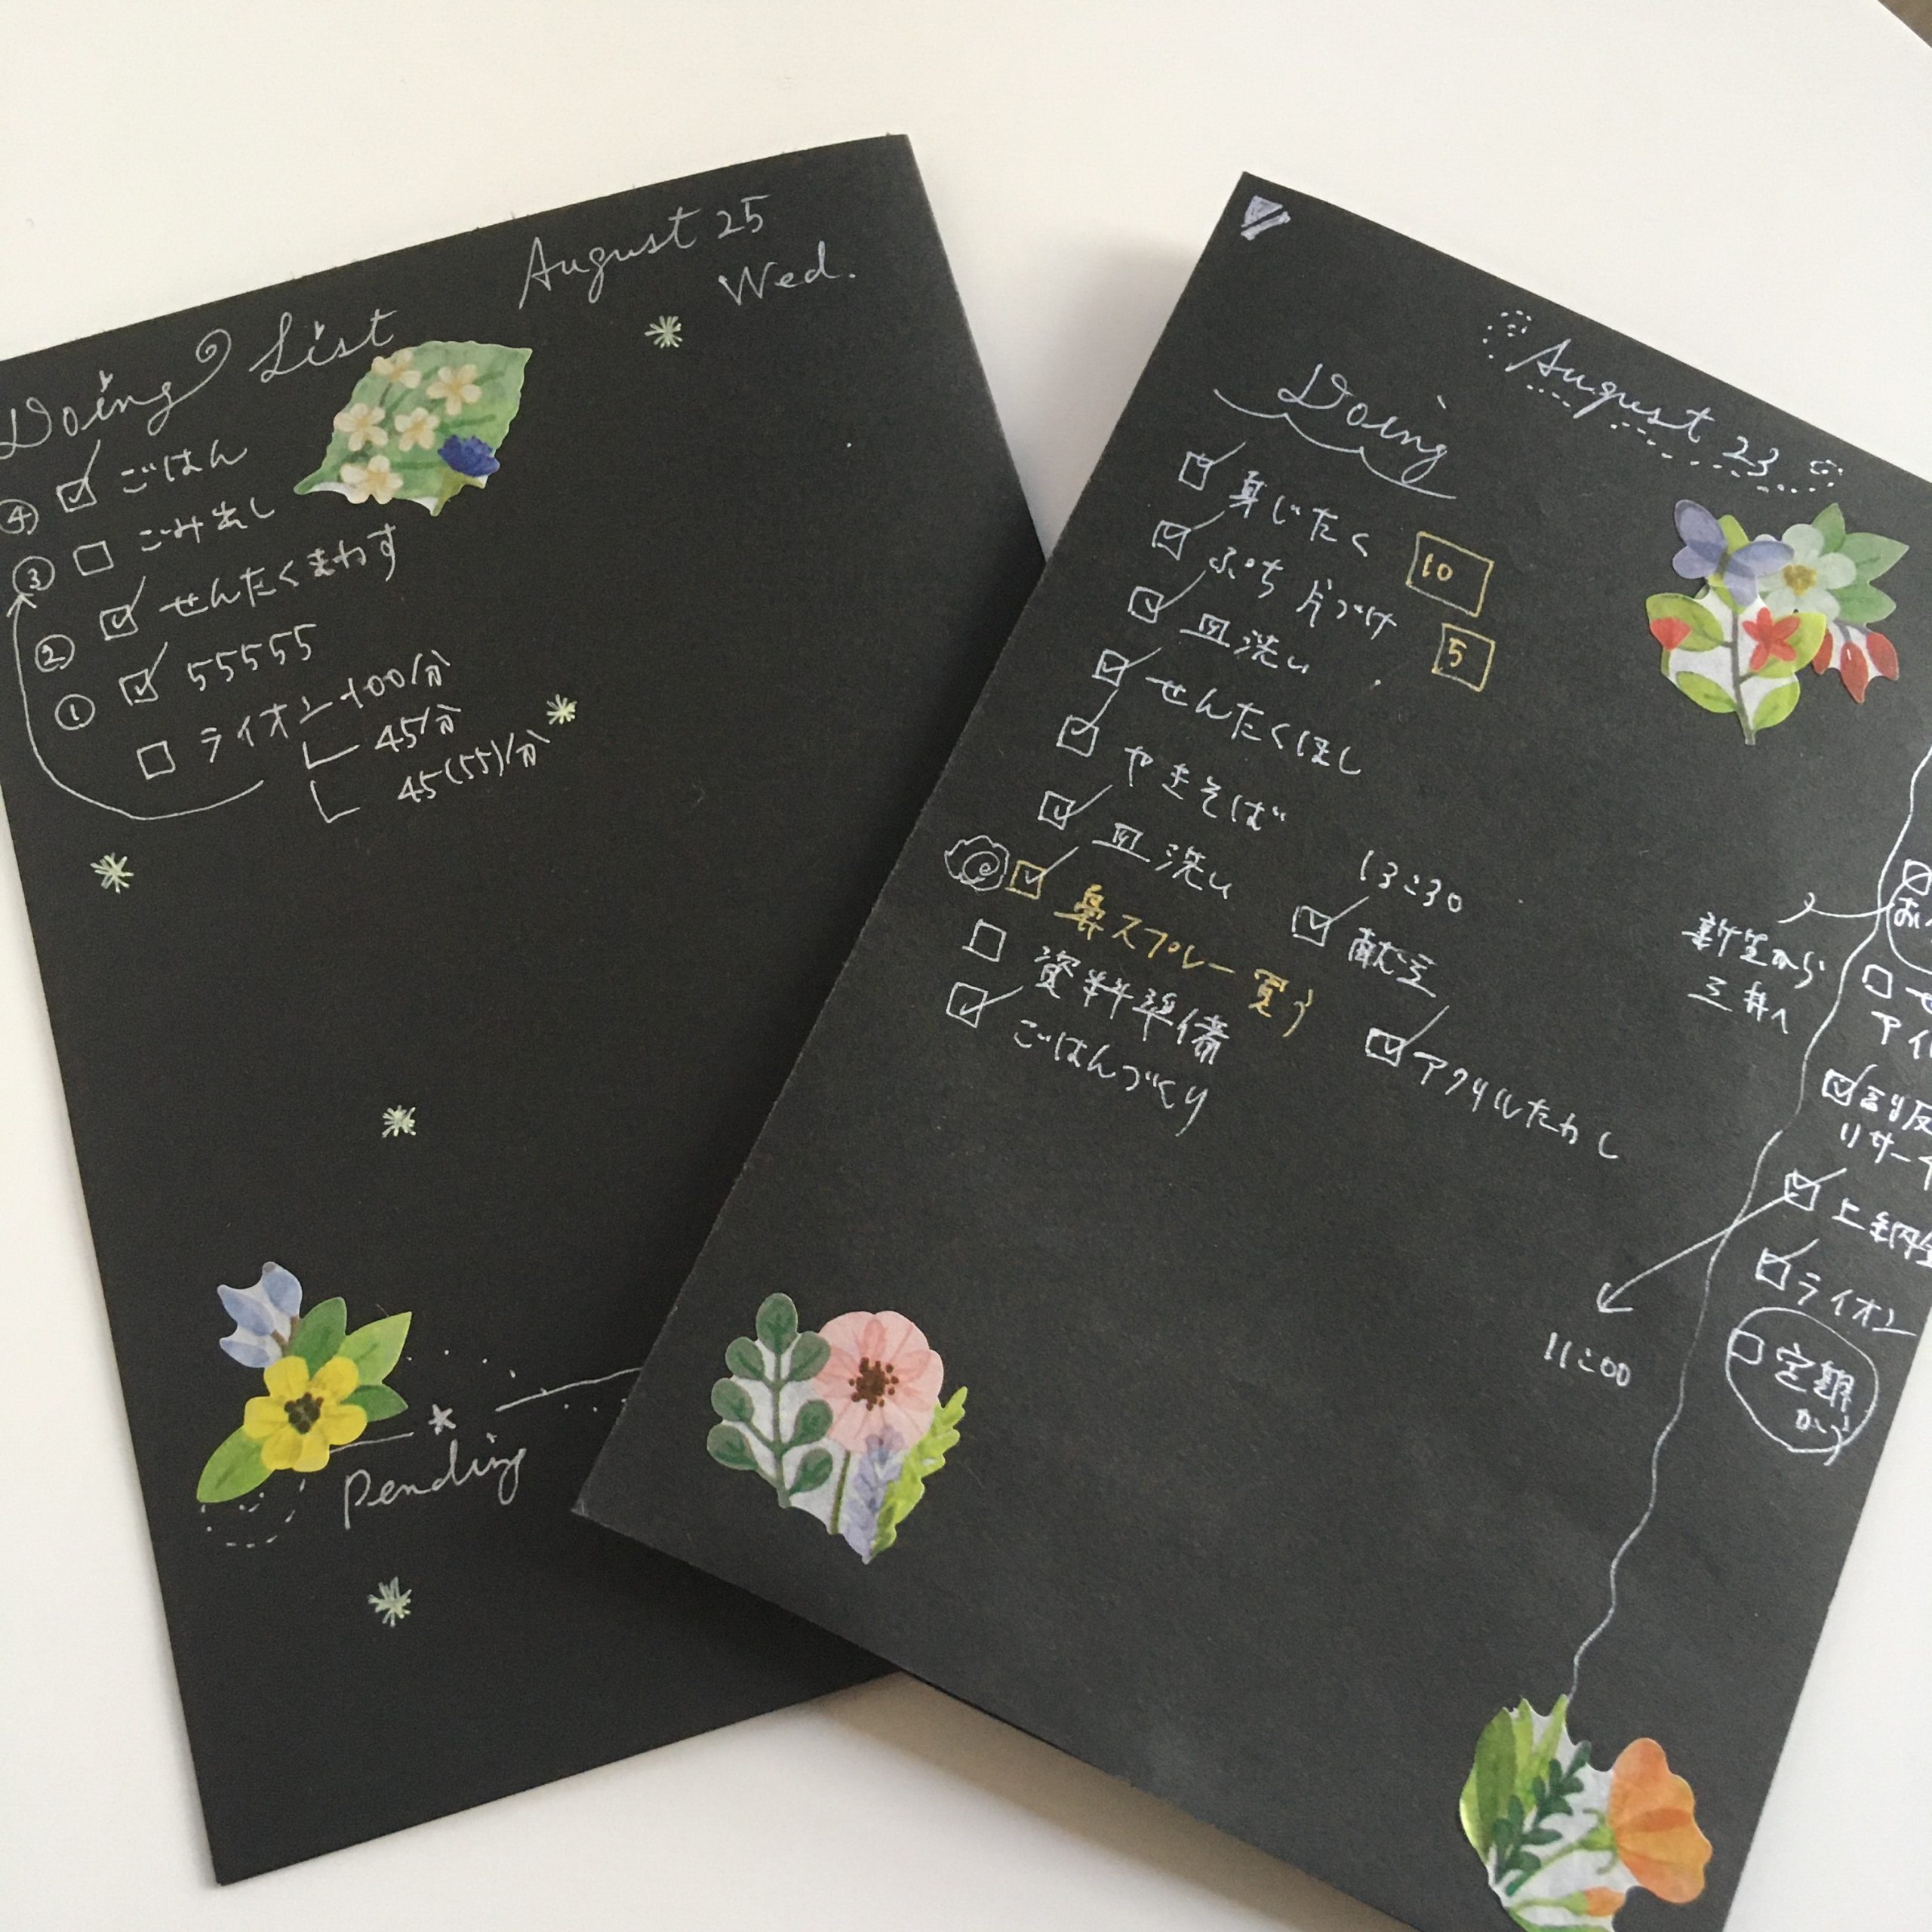 August 25
Wed.
Doing List
④ ☑ ごはん
③ ☐ ごみ出し
② ☑ せんたくまわす
① ☑ 55555
☐ ライオン100/分
45/分
45(55)/分
Pending
August 23
Doing
☑ 身じたく 10
☑ ぷち片づけ 5
☑ 皿洗い
☑ せんたくほし
☑ やきそば
☑ 皿洗い
☑ 鼻スプレー買う
☐ 資料準備
☑ ごはんづくり
13:30
☑
☑ アクリルたわし
新生から
三井へ
☐ せ
アイ
☑
リサー
☑ 上納金
11:00
☑ ライオン
☐ 定期
かう